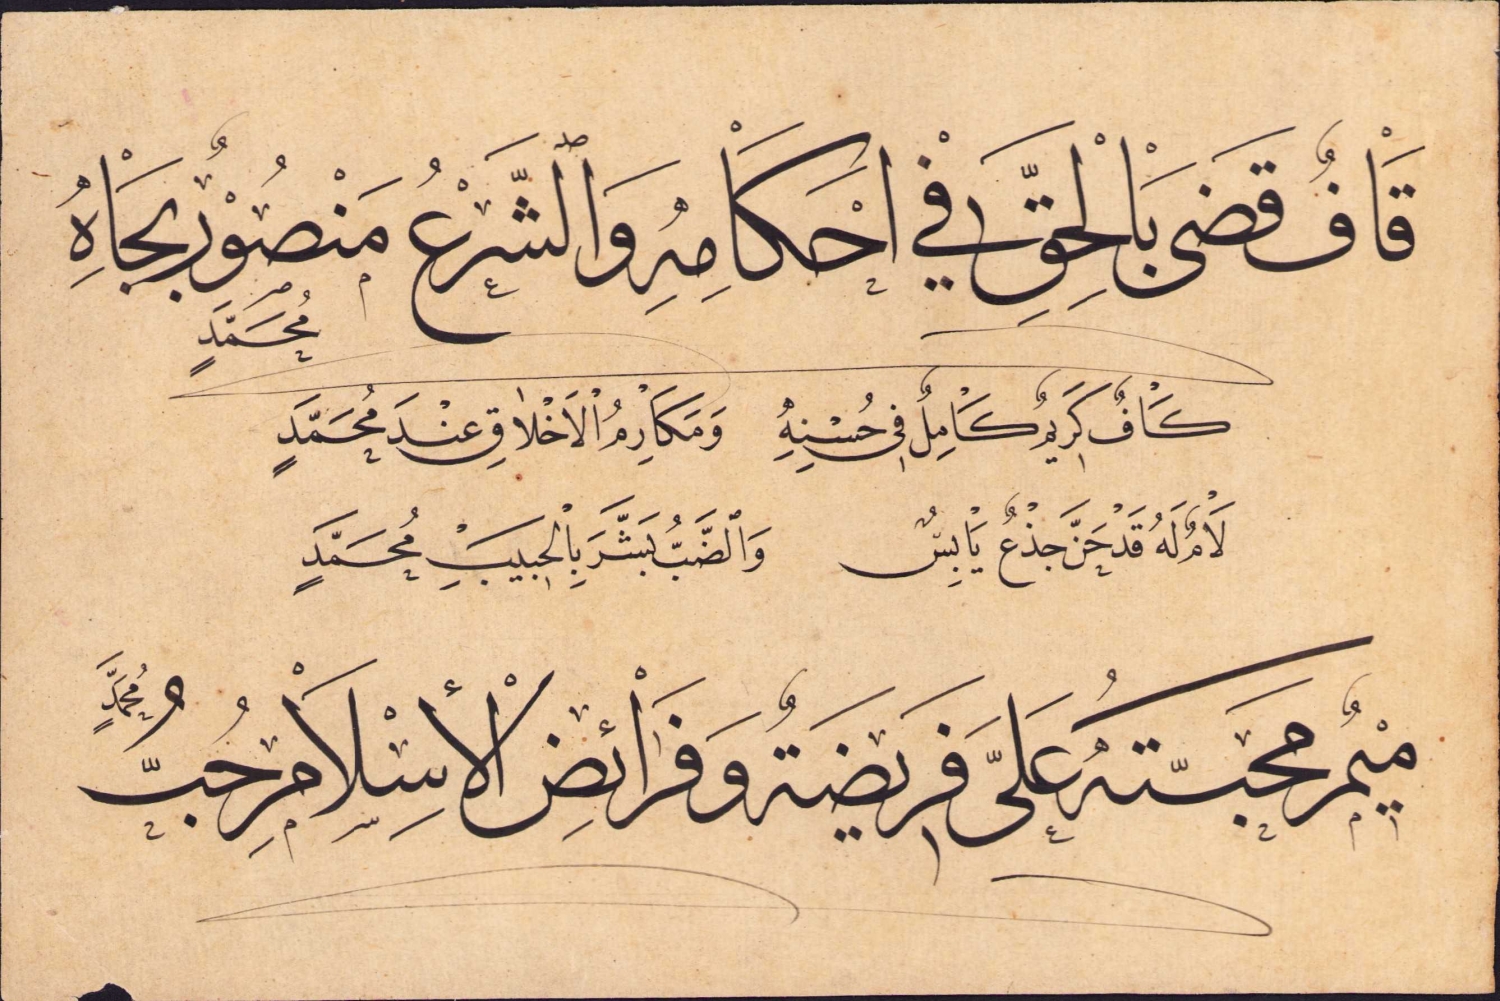 قَافٌ قَضٰى بَالْحِقِّ فِي اَحْكَامِهِ وَالشَّرْعُ مَنْصُوْرٌ بِجَاهِ
مُحَمَّدٍ
كَافٌ كَرِيمٌ كَامِلٌ فِي حُسْنِهِ وَمَكَارِمُ الْاَخْلَاقِ عِنْدَ مُحَمَّدٍ
لَامٌ لَهُ قَدْ حَنَّ جِذْعٌ يَابِسٌ وَالضَّبُّ بَشَّرَ بِالْحَبِيبِ مُحَمَّدٍ
مِيْمٌ مَحَبَّتهُ عَلَىَّ فَرِيضَةٌ وَفَرَائِضُ الْأِسْلَامِ حُبُّ
مُحَمَّدٍ